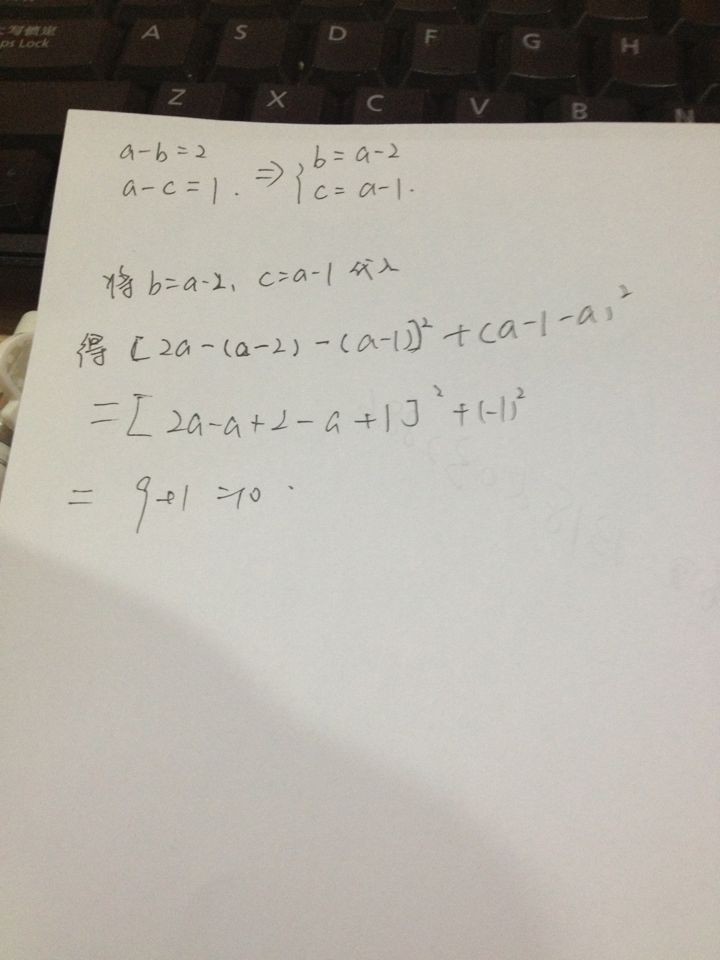 大写锁定
ps Lock
A
S
D
F
G
H
Z
X
C
V
B
N
a-b=2
a-c=1. ⇒ { b=a-2
c=a-1.
将 b=a-2, c=a-1 代入
得 [2a-(a-2)-(a-1)]²+(a-1-a)²
=[2a-a+2-a+1]²+(-1)²
= 9+1=10.